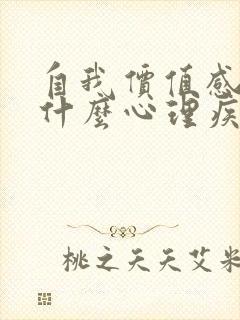 自我價值感
什麼心理疾
桃之夭夭艾米